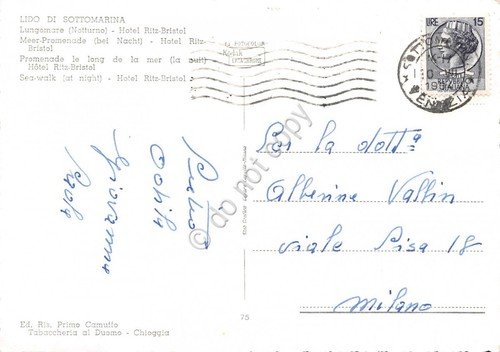 LIDO DI SOTTOMARINA
Lungomare (Notturno) - Hotel Ritz-Bristol
Meer-Promenade (bei Nacht) - Hotel Ritz-
Bristol
Promenade le long de la mer (la nuit)
Hôtel Ritz-Bristol
Sea-walk (at night) - Hotel Ritz-Bristol
Kodak
LIRE 15
Per la dott.a
Albenine Vallin
viale Pisa 18
Milano
Giovanna
Paola
do not copy
75
Ed. Ris. Primo Camuffo
Tabaccheria al Duomo - Chioggia